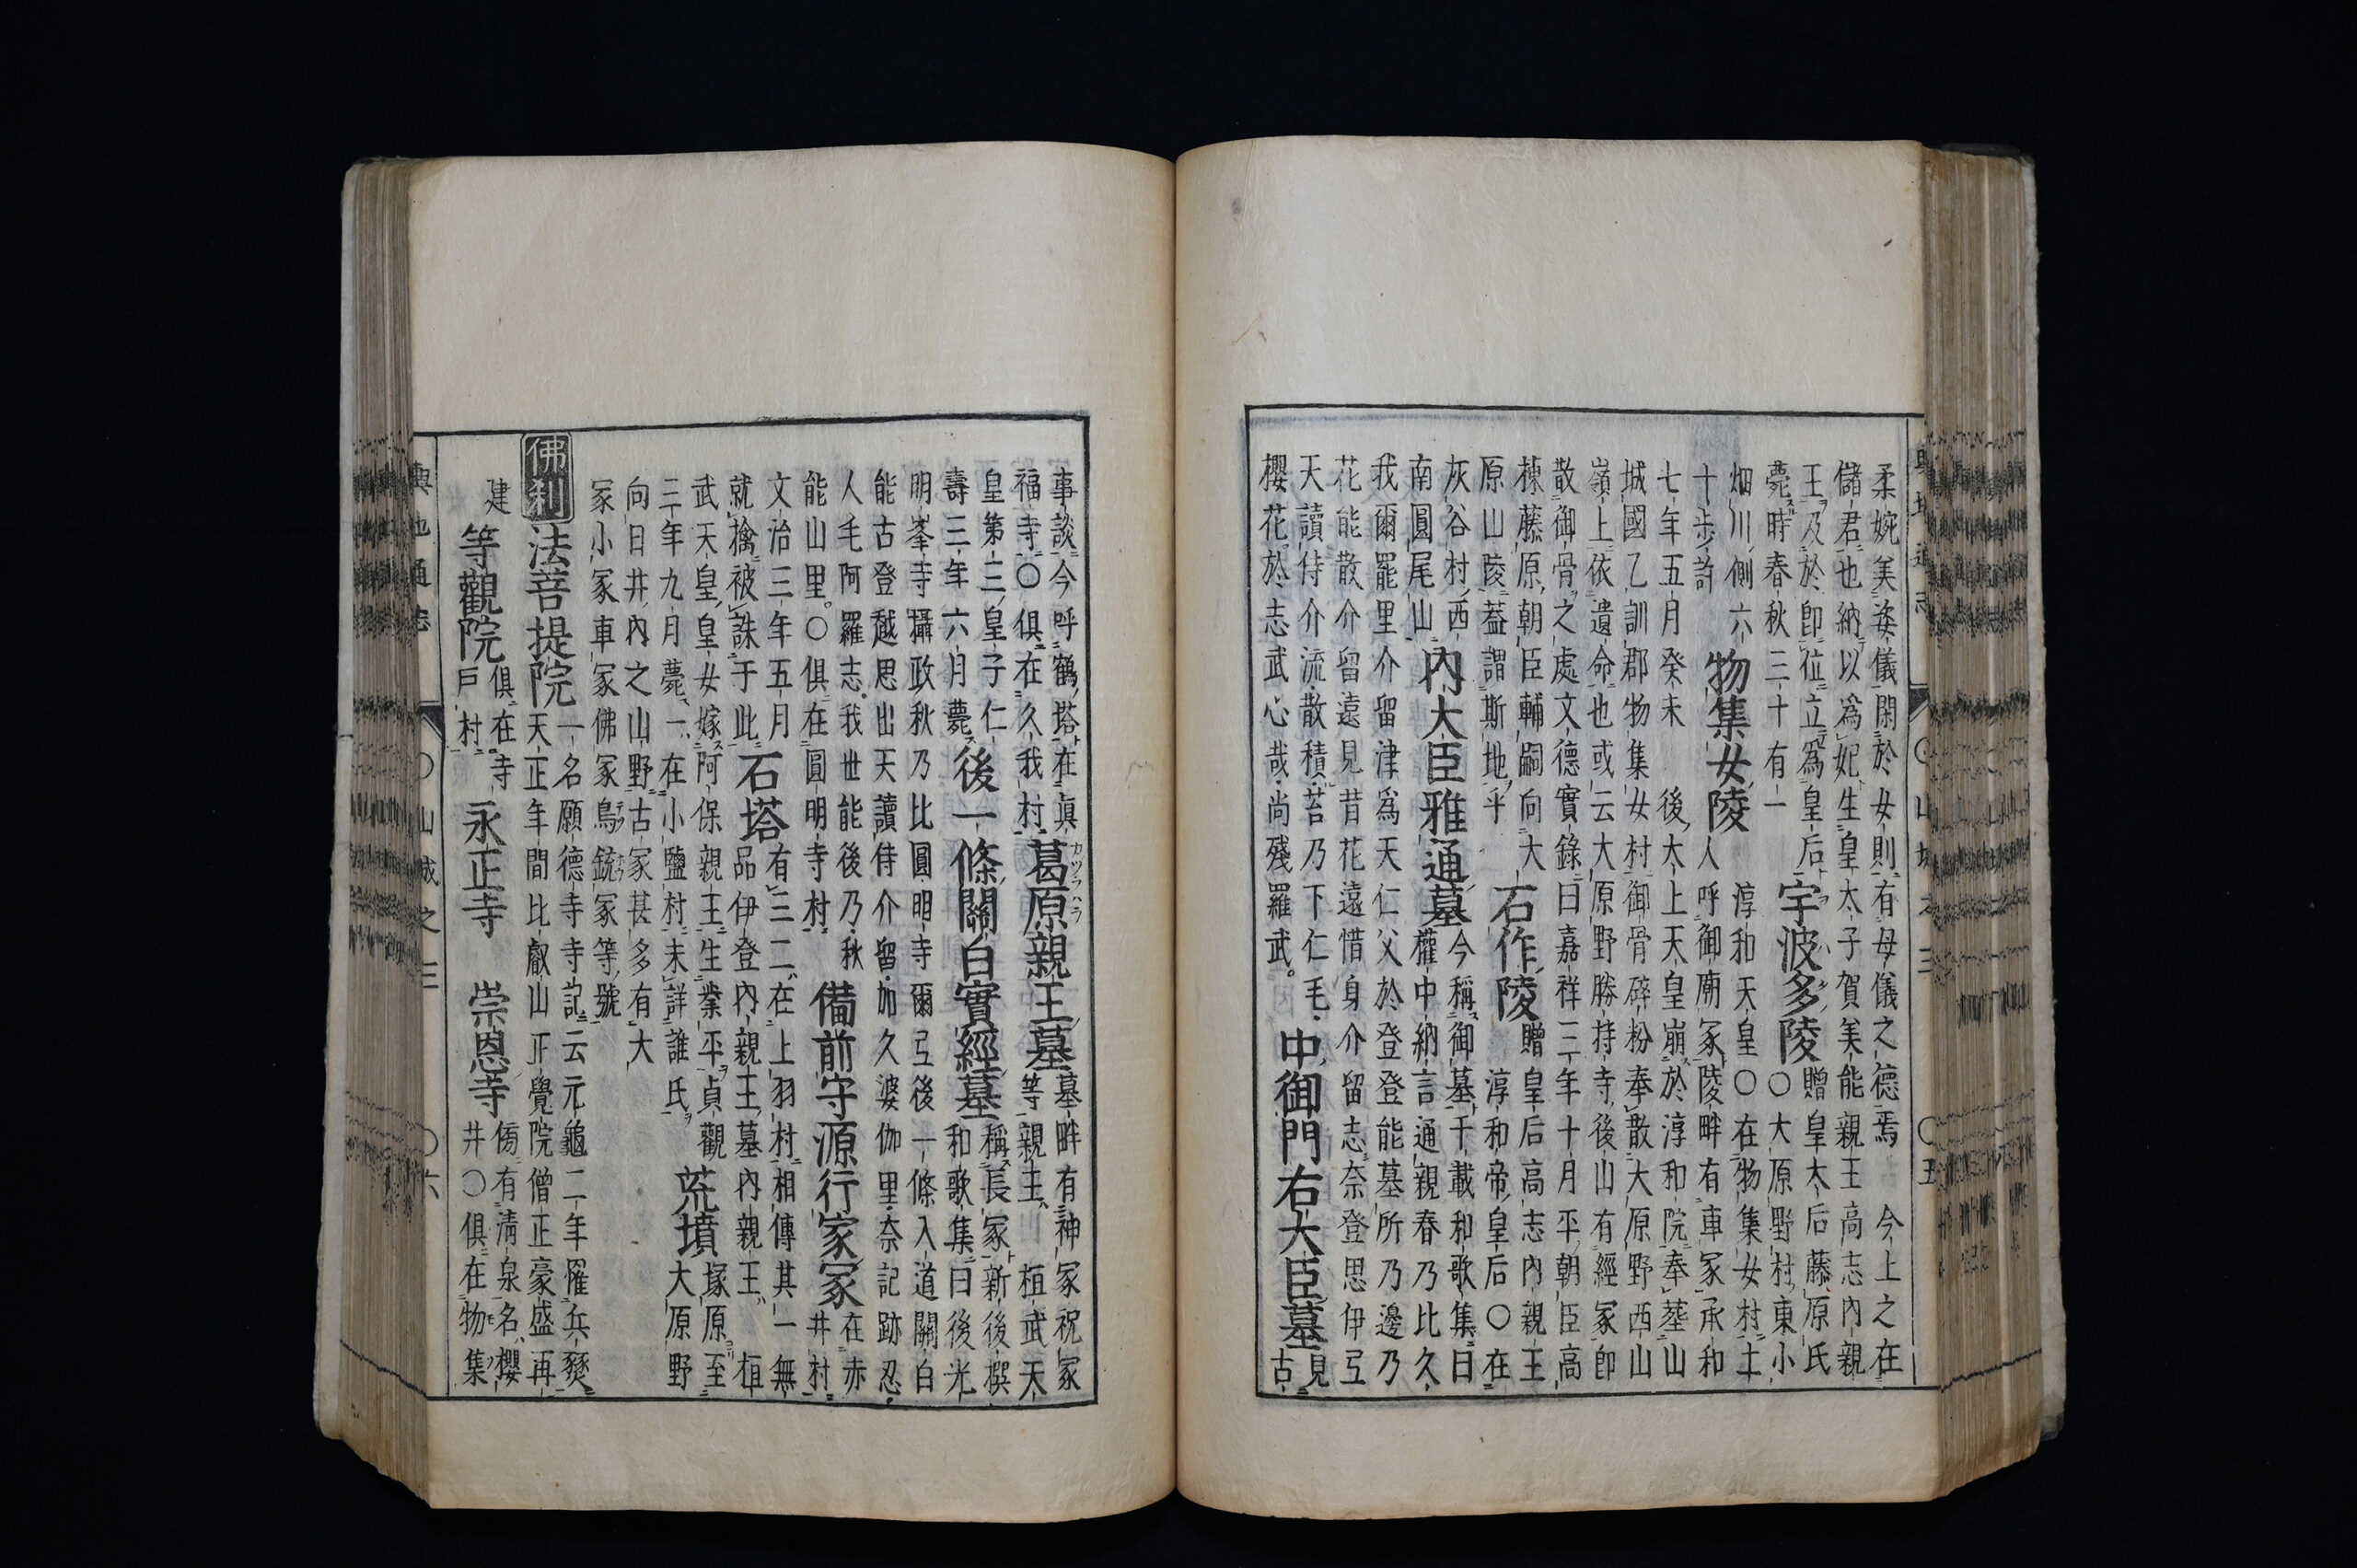 柔婉美姿儀閑於女則有母儀之德焉 今上之在
儲君也納以爲妃生皇太子賀美能親王高志內親
王及於即位立爲皇后
薨時春秋三十有一
宇波多陵
贈皇太后藤原氏
○大原野村東小
畑川側六
十歩許
物集女陵
淳和天皇○在物集女村土
人呼御廟冢陵畔有車冢承和
七年五月癸未 後太上天皇崩於淳和院奉葬山
城國乙訓郡物集女村御骨碎粉奉散大原野西山
嶺上依遺命也或云大原野勝持寺後山有經冢即
散御骨之處文德實錄曰嘉祥三年十月平朝臣高
棟藤原朝臣輔嗣向大
原山陵蓋謂斯地乎
石作陵
贈皇后高志內親王
淳和帝皇后○在
灰谷村西
南圓尾山
內大臣雅通墓
今稱御墓千載和歌集曰
權中納言通親春乃比久
我爾罷里介留津爲天仁父於登登能墓所乃邊乃
花能散介留遠見昔花遠惜身介留志奈登思伊弖
天讀侍介流散積苔乃下仁毛
櫻花於志武心哉尚殘羅武。
中御門右大臣墓
見
古
事談今呼鶴塔在眞
福寺○俱在久我村
葛原親王墓
カツラハラ
墓畔有神冢祝冢
等親王 桓武天
皇第三皇子仁
壽三年六月薨
後一條關白實經墓
稱長冢新後撰
和歌集曰後光
明峯寺攝政秋乃比圓明寺爾弖後一條入道關白
能古登越思出天讀侍介留加久婆伽里奈記跡忍
人毛阿羅志我世能後乃秋
能山里。○俱在圓明寺村
備前守源行家冢
在赤
井村
文治三年五月
就擒被誅于此
石塔
有三二在上羽村相傳其一無
品伊登內親王墓內親王桓
武天皇皇女嫁阿保親王生業平貞觀
三年九月薨一在小鹽村未詳誰氏
荒墳
塚原至
大原野
向日井內之山野古冢甚多有大
冢小冢車冢佛冢鳥銃冢等號
佛刹
法菩提院
一名願德寺寺記云元龜二年罹兵燹
天正年間比叡山正覺院僧正豪盛再
建
等觀院
俱在寺
戶村
永正寺
崇恩寺
傍有淸泉名櫻
井○俱在物集